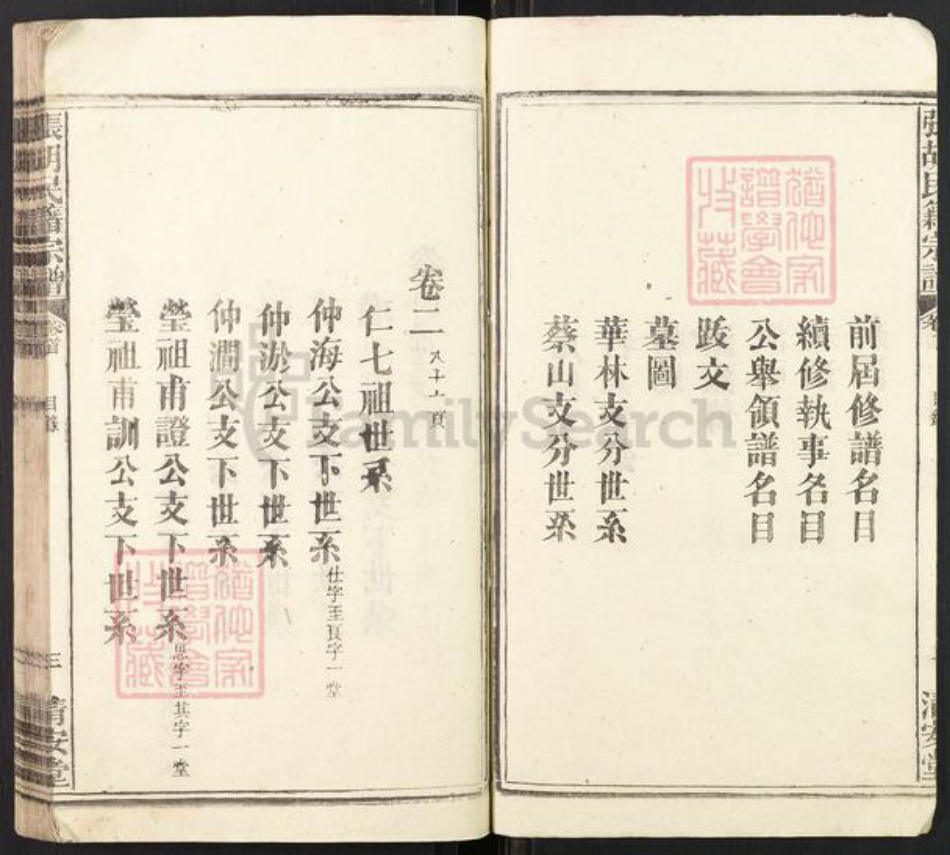 前屆修譜名目
續修執事名目
公舉領譜名目
跋文
墓圖
華林支分世系
蔡山支分世系
卷二
仁七祖世系
仲海公支下世系 仕字至良字一堂
仲淤公支下世系
仲澗公支下世系
瑩祖甫證公支下世系 思字至其字一堂
瑩祖甫訓公支下世系
張胡氏籍宗譜
卷首
目錄
三
清安堂
張胡氏籍宗譜
清安堂
收藏
收藏
FamilySearch